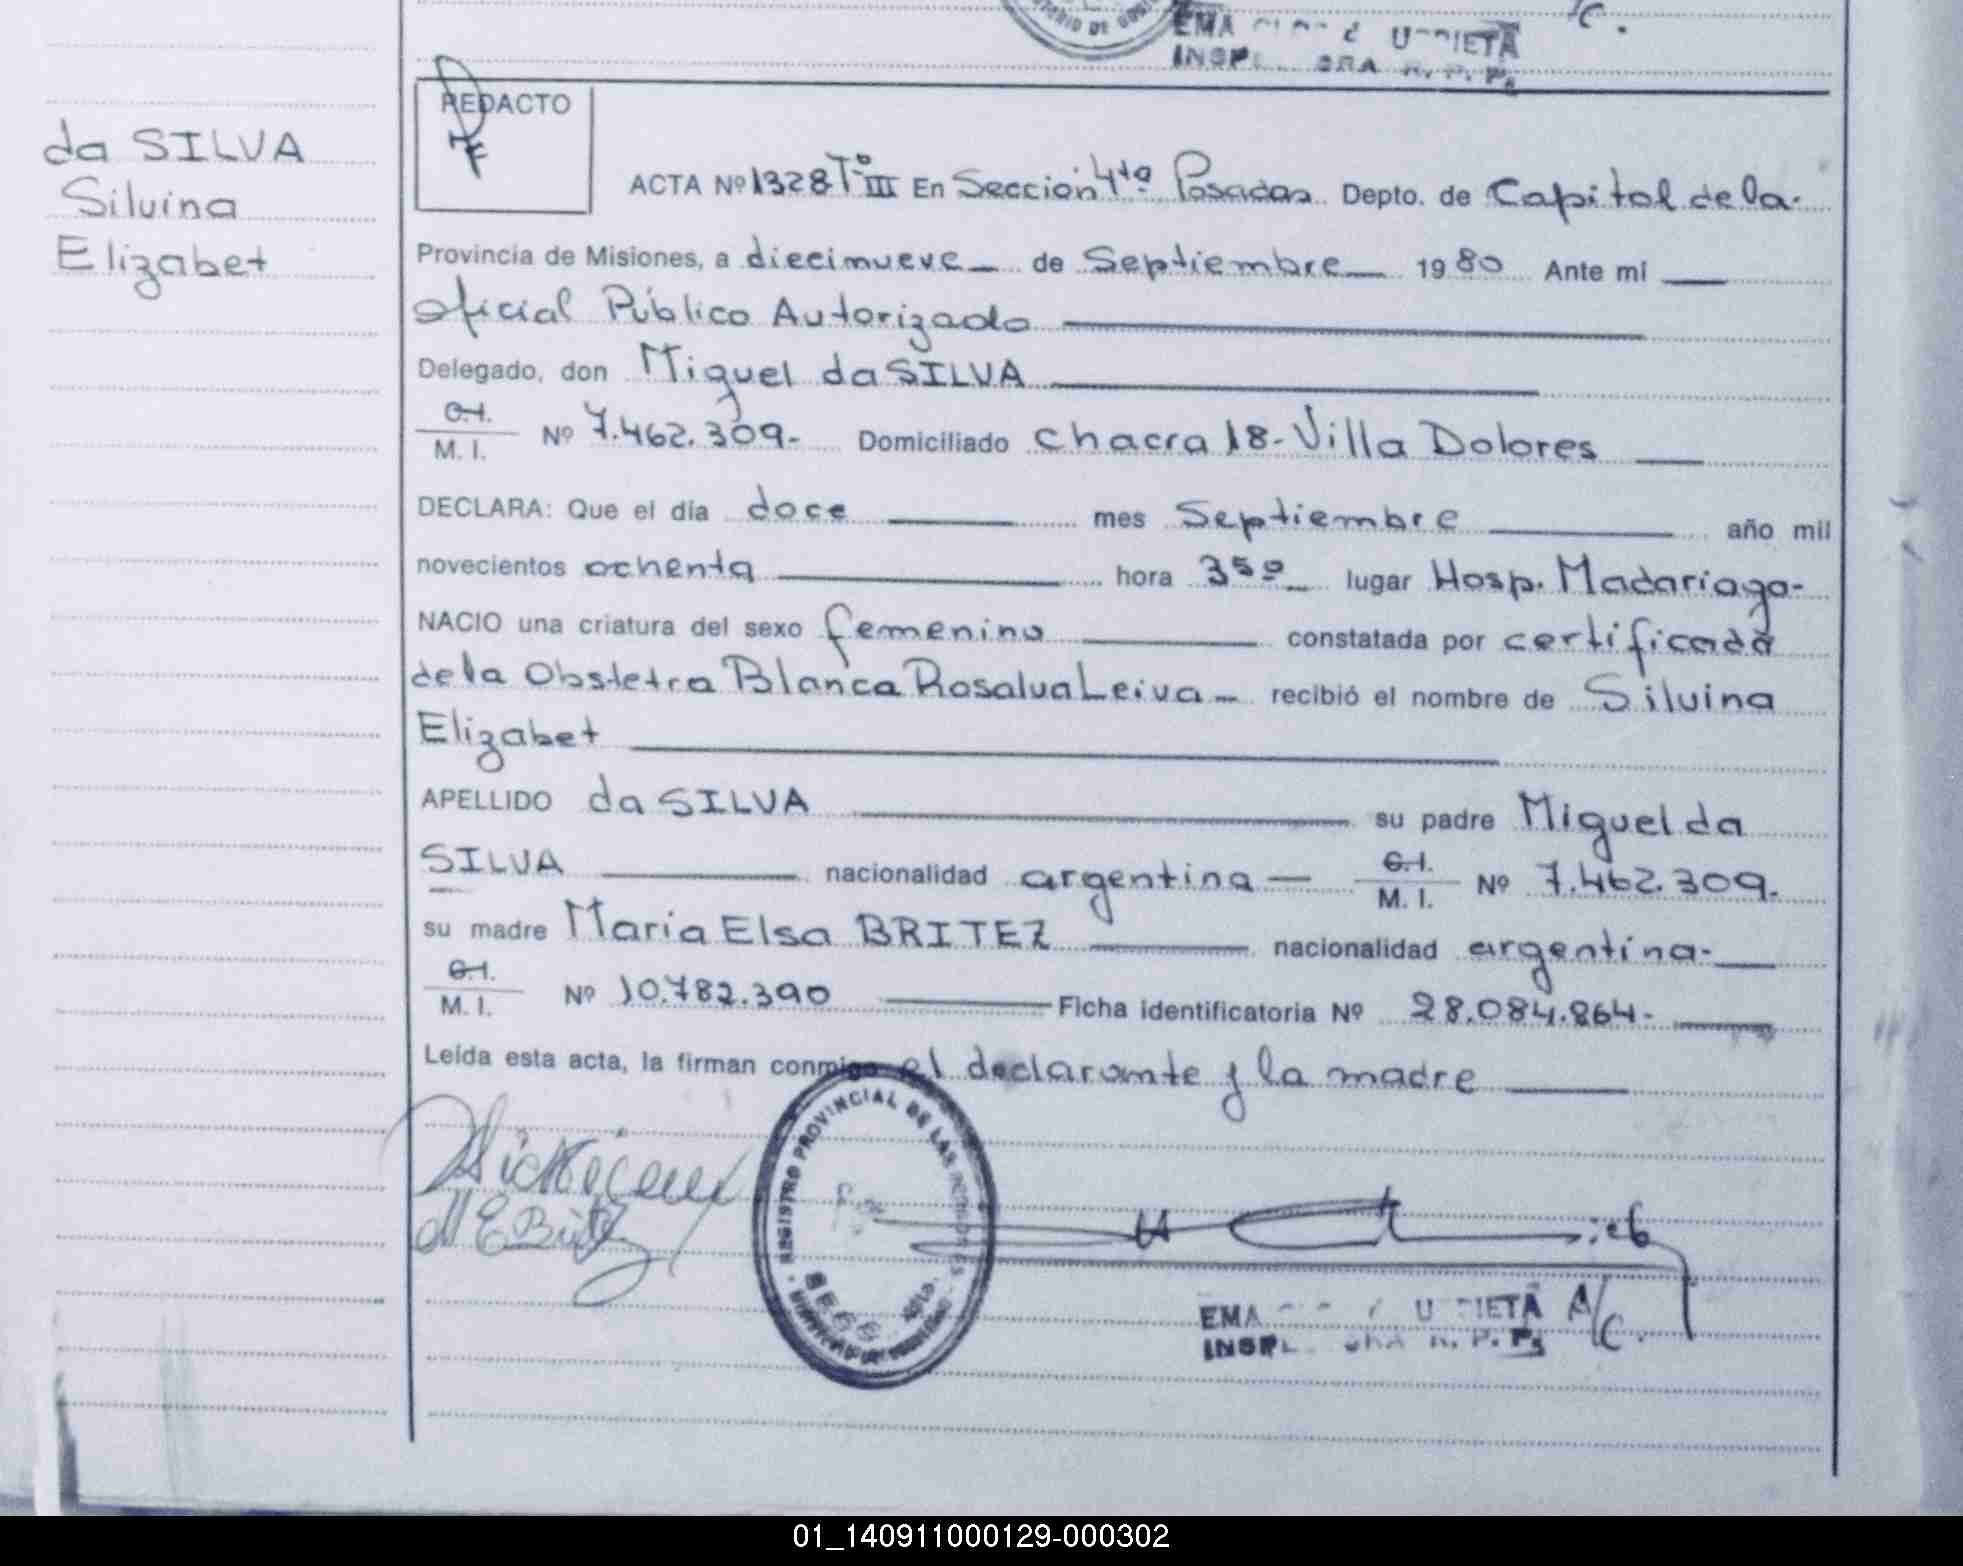 C.
EMA
INSP
R. P. P.
REDACTO
da SILVA
Silvina
Elizabet
ACTA Nº 1328 Tº III En Sección 4ta Posadas Depto. de Capital de la-
Provincia de Misiones, a diecinueve de Septiembre 1980 Ante mí
Oficial Público Autorizado
Delegado, don Miguel da SILVA
C.I.
M. I. Nº 7.462.309.- Domiciliado chacra 18- Villa Dolores
DECLARA: Que el día doce mes Septiembre año mil
novecientos ochenta hora 3 50 lugar Hosp. Madariaga-
NACIO una criatura del sexo femenino constatada por certificado
de la Obstetra Blanca Rosalva Leiva recibió el nombre de Silvina
Elizabet
APELLIDO da SILVA su padre Miguel da
SILVA nacionalidad argentina C.I. M. I. Nº 7.462.309.
su madre María Elsa BRITEZ nacionalidad argentina-
C.I.
M. I. Nº 10.782.390 Ficha identificatoria Nº 28.084.864-
Leída esta acta, la firman conmigo el declarante y la madre
REGISTRO PROVINCIAL DE LAS PERSONAS
M E Britez
EMA
A/C.
INSP
R. P. P.
01_140911000129-000302